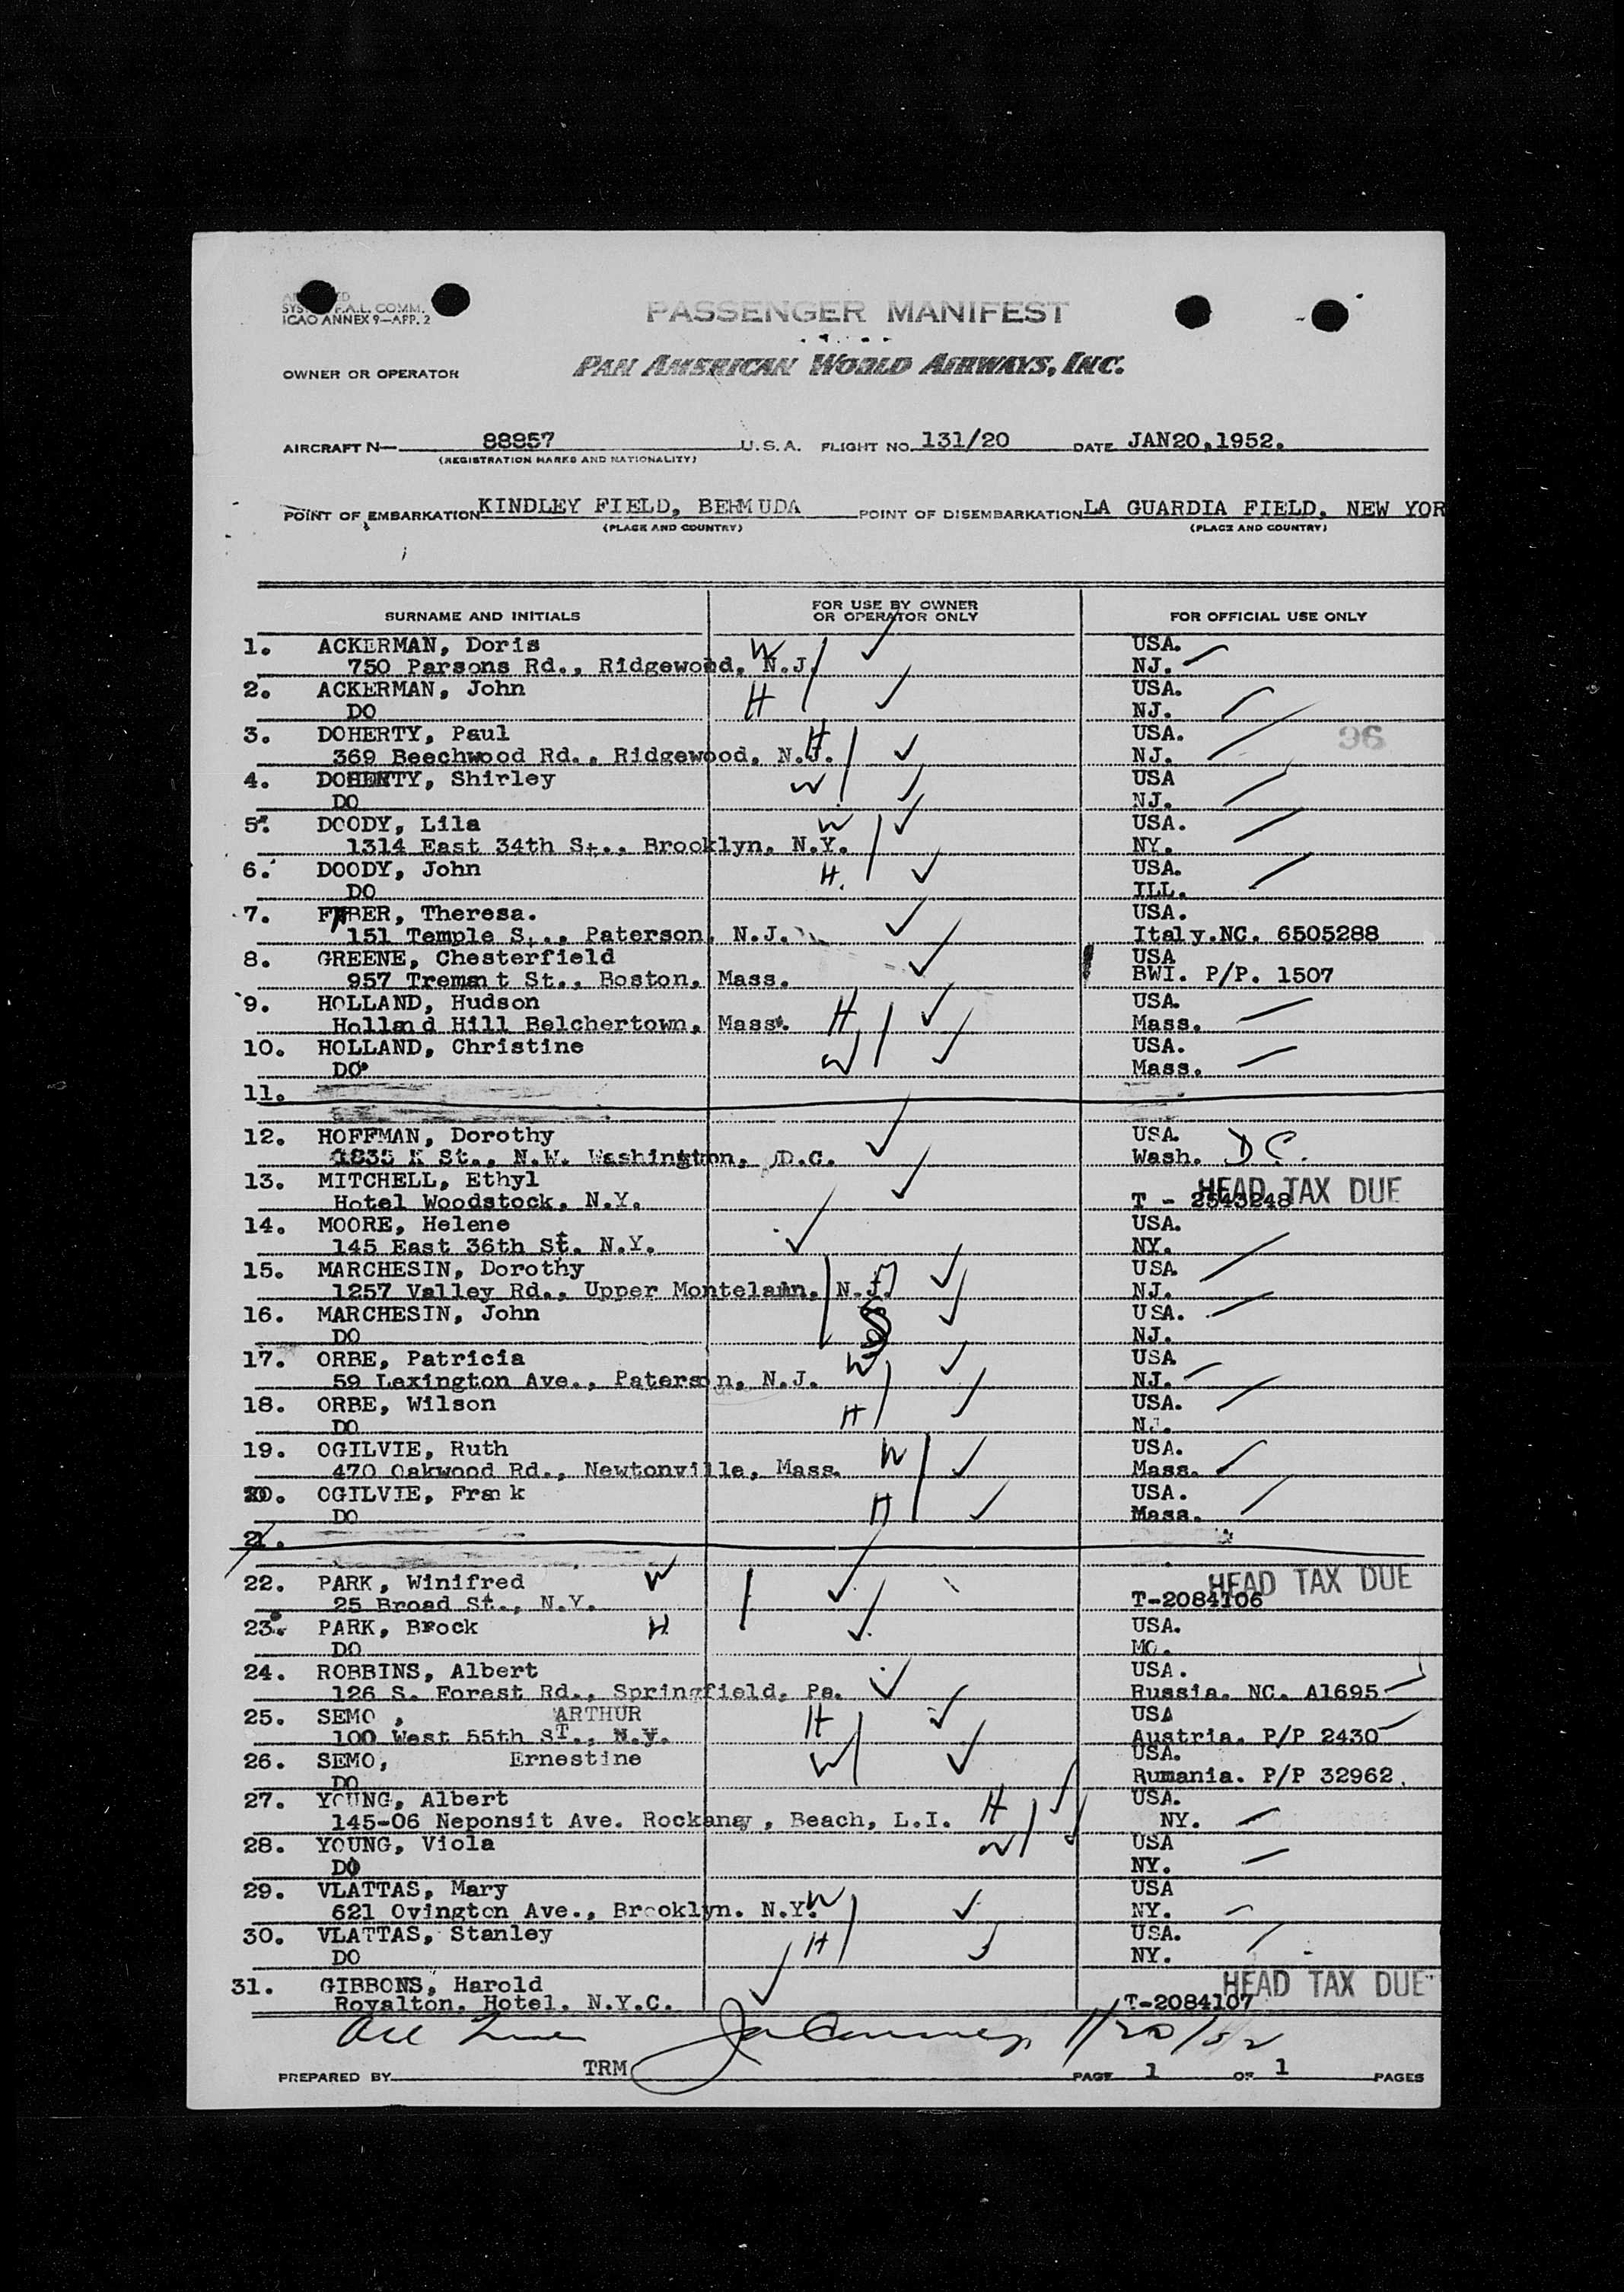 F.A.L. COMM.
ICAO ANNEX 9—APP. 2
PASSENGER MANIFEST
OWNER OR OPERATOR PAN AMERICAN WORLD AIRWAYS, INC.
AIRCRAFT N— 88957 U.S.A. FLIGHT NO. 131/20 DATE JAN20,1952.
(REGISTRATION MARKS AND NATIONALITY)
POINT OF EMBARKATION KINDLEY FIELD, BERMUDA POINT OF DISEMBARKATION LA GUARDIA FIELD, NEW YOR
(PLACE AND COUNTRY) (PLACE AND COUNTRY)
SURNAME AND INITIALS FOR USE BY OWNER OR OPERATOR ONLY FOR OFFICIAL USE ONLY
1. ACKERMAN, Doris W USA.
750 Parsons Rd., Ridgewood, N.J. NJ.
2. ACKERMAN, John H USA.
DO NJ.
3. DOHERTY, Paul H USA. 96
369 Beechwood Rd., Ridgewood, N.J. NJ.
4. DOHERTY, Shirley W USA
DO NJ.
5. DOODY, Lila W USA.
1314 East 34th St., Brooklyn, N.Y. NY.
6. DOODY, John H. USA.
DO ILL.
7. FABER, Theresa. USA.
151 Temple S.., Paterson, N.J. Italy.NC. 6505288
8. GREENE, Chesterfield USA
957 Tremant St., Boston, Mass. BWI. P/P. 1507
9. HOLLAND, Hudson H USA.
Holland Hill Belchertown, Mass. Mass.
10. HOLLAND, Christine W USA.
DO Mass.
11.
12. HOFFMAN, Dorothy USA.
1835 K St., N.W. Washington, D.C. Wash. D C.
13. MITCHELL, Ethyl HEAD TAX DUE
Hotel Woodstock, N.Y. T - 2543248
14. MOORE, Helene USA.
145 East 36th St. N.Y. NY.
15. MARCHESIN, Dorothy USA
1257 Valley Rd., Upper Montelainn, N.J. NJ.
16. MARCHESIN, John USA.
DO NJ.
17. ORBE, Patricia W USA
59 Lexington Ave., Paterson, N.J. NJ.
18. ORBE, Wilson H USA.
DO NJ.
19. OGILVIE, Ruth W USA.
470 Oakwood Rd., Newtonville, Mass. Mass.
20. OGILVIE, Frank H USA.
DO Mass.
21.
22. PARK, Winifred W HEAD TAX DUE
25 Broad St., N.Y. T-2084106
23. PARK, Brock H USA.
DO MO.
24. ROBBINS, Albert USA.
126 S. Forest Rd., Springfield, Pa. Russia. NC. A1695
25. SEMO , ARTHUR H USA
100 West 55th ST., N.Y. Austria. P/P 2430
26. SEMO, Ernestine W USA.
DO Rumania. P/P 32962.
27. YOUNG, Albert H USA.
145-06 Neponsit Ave. Rockaway , Beach, L.I. NY.
28. YOUNG, Viola W USA
DO NY.
29. VLATTAS, Mary W USA
621 Ovington Ave., Brooklyn. N.Y. NY.
30. VLATTAS, Stanley H USA.
DO NY.
31. GIBBONS, Harold HEAD TAX DUE
Royalton. Hotel. N.Y.C. T-2084107
1/20/52
PREPARED BY TRM PAGE 1 OF 1 PAGES